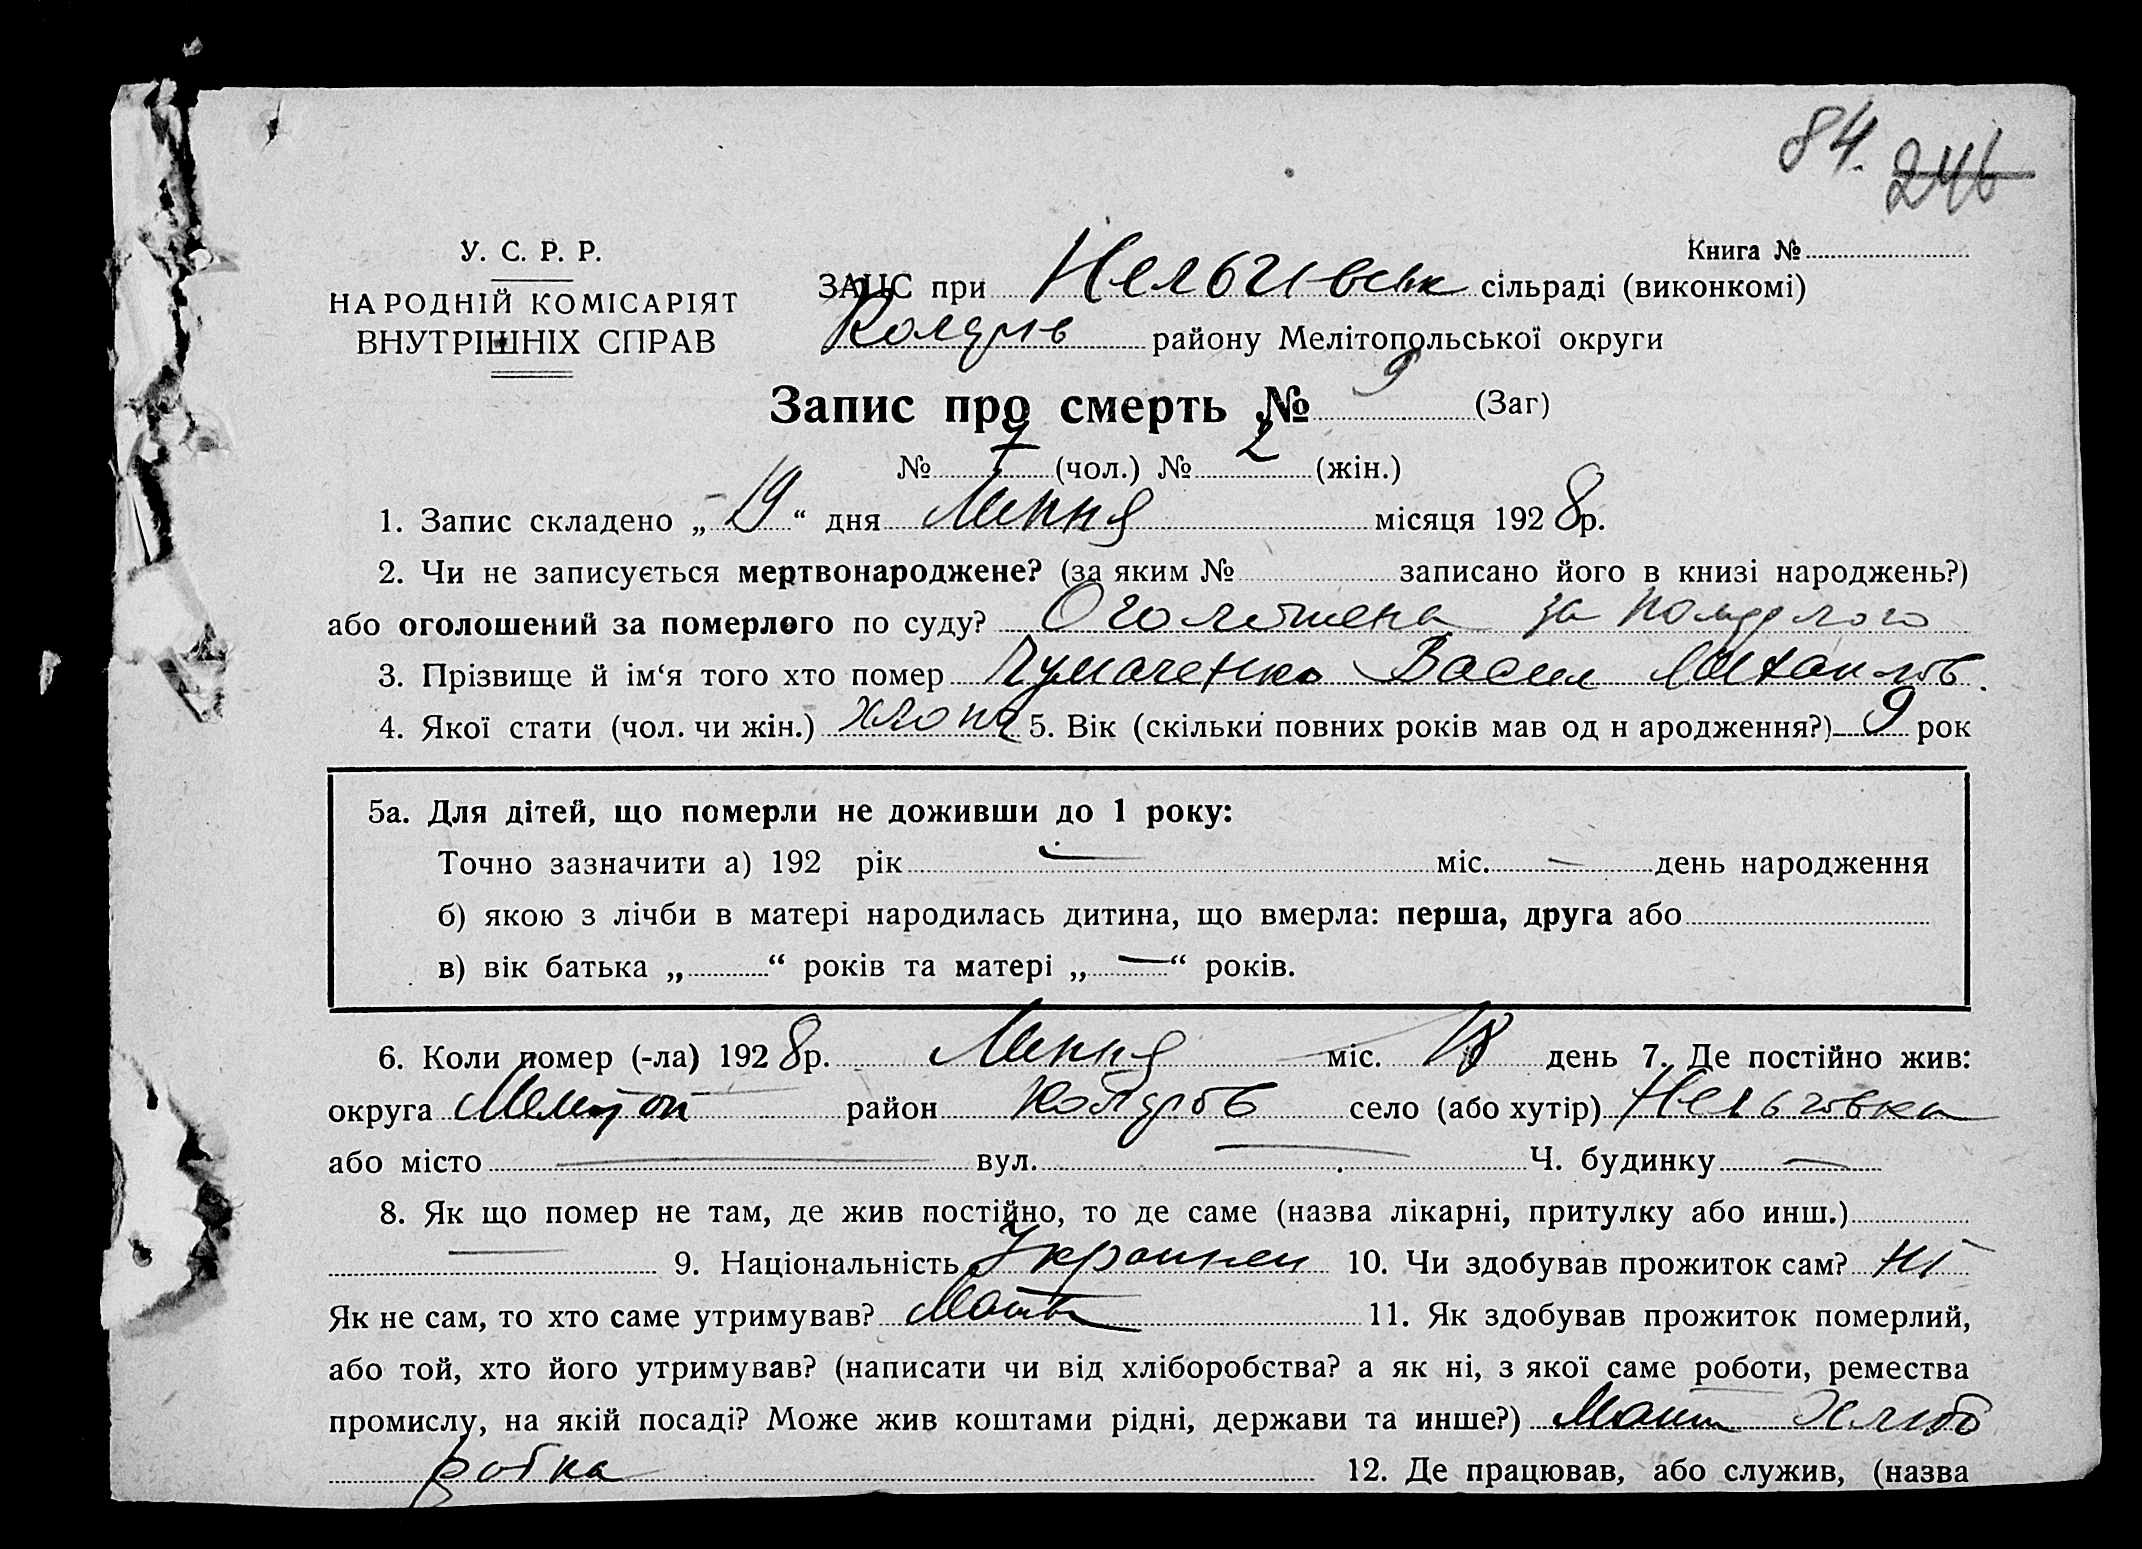 84. 246
У. С. Р. Р.
НАРОДНІЙ КОМІСАРІЯТ
ВНУТРІШНІХ СПРАВ
Книга №
ЗАЦС при Нельгівськ сільраді (виконкомі)
району Мелітопольської округи
Запис про смерть № 9 (Заг)
№ 7 (чол.) № 2 (жін.)
1. Запис складено „19“ дня Липня місяця 1928р.
2. Чи не записується мертвонароджене? (за яким № записано його в книзі народжень?)
або оголошений за померлого по суду? за
3. Прізвище й ім‘я того хто помер Чумаченко Васил Михаилов.
4. Якої стати (чол. чи жін.) хлопц 5. Вік (скільки повних років мав од н ародження?) 9 рок
5а. Для дітей, що померли не доживши до 1 року:
Точно зазначити а) 192 рік — міс. — день народження
б) якою з лічби в матері народилась дитина, що вмерла: перша, друга або
в) вік батька „ “ років та матері „—“ років.
6. Коли помер (-ла) 1928р. Липня міс. 18 день 7. Де постійно жив:
округа Мелітоп район село (або хутір) Нельговка
або місто — вул. — Ч. будинку —
8. Як що помер не там, де жив постійно, то де саме (назва лікарні, притулку або инш.)
— 9. Національність Украинец 10. Чи здобував прожиток сам? ні
Як не сам, то хто саме утримував? Мать 11. Як здобував прожиток померлий,
або той, хто його утримував? (написати чи від хліборобства? а як ні, з якої саме роботи, ремества
промислу, на якій посаді? Може жив коштами рідні, держави та инше?) Мати Хлібо
робка 12. Де працював, або служив, (назва